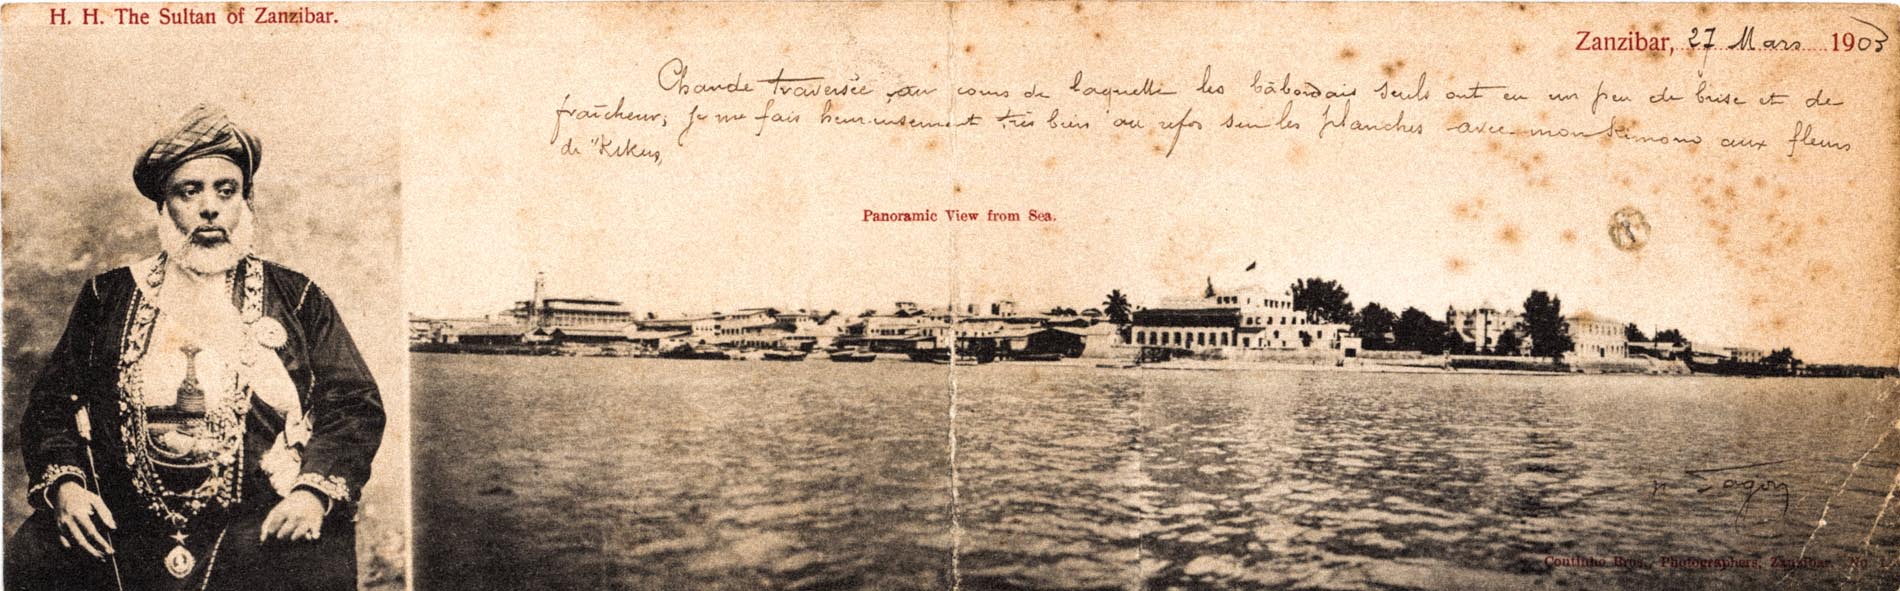 H. H. The Sultan of Zanzibar.
Zanzibar, 27 Mars 1903
Chaude traversée au cours de laquelle les bâbordais seuls ont eu un peu de brise et de
fraîcheur; je me fais heureusement très bien au repos sur les planches avec mon kimono aux fleurs
de "Kikus,
Panoramic View from Sea.
Coutinho Bros., Photographers, Zanzibar. No. 1.